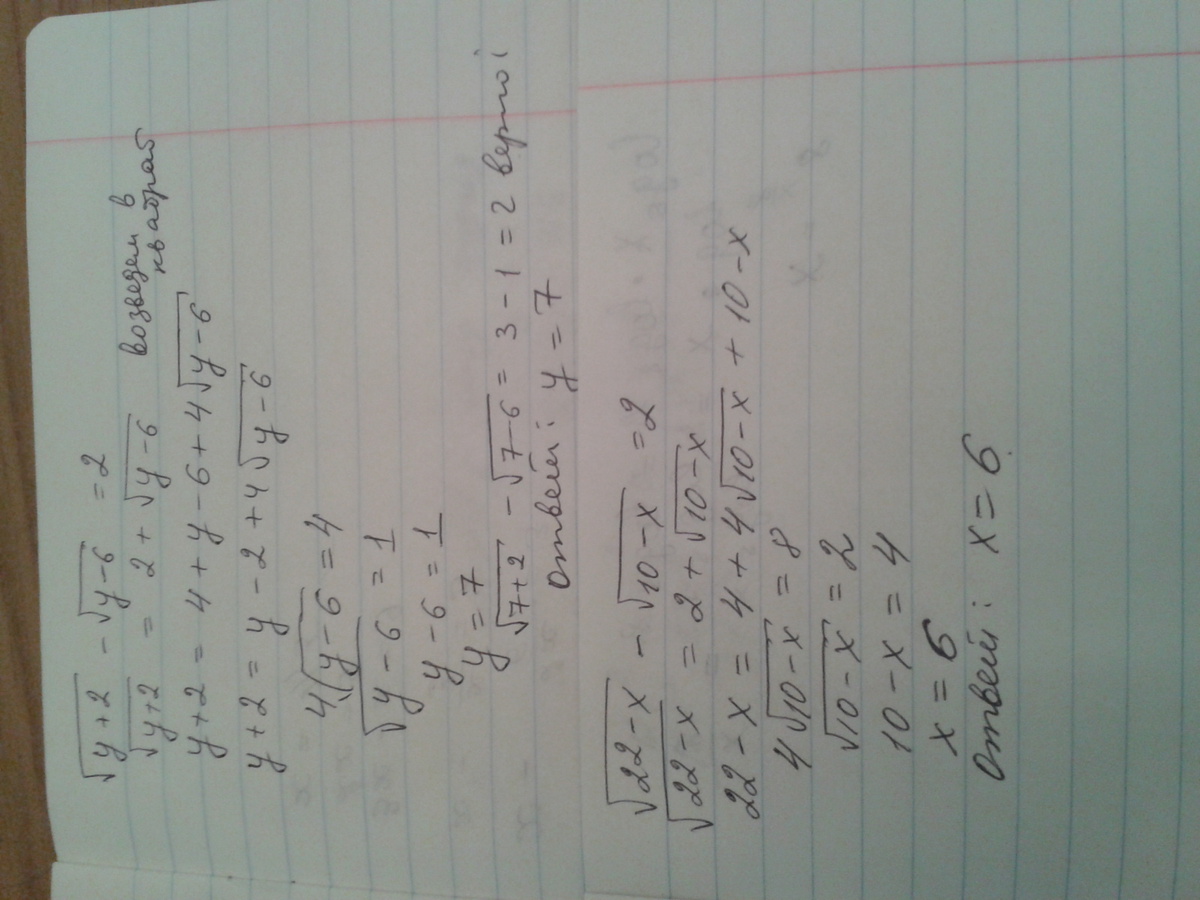 √(y+2) - √(y-6) = 2
√(y+2) = 2 + √(y-6) возведем в квадрат
y+2 = 4 + y - 6 + 4√(y-6)
y+2 = y - 2 + 4√(y-6)
4√(y-6) = 4
√(y-6) = 1
y - 6 = 1
y = 7
√(7+2) - √(7-6) = 3 - 1 = 2 верно!
Ответ: y = 7
√(22-x) - √(10-x) = 2
√(22-x) = 2 + √(10-x)
22 - x = 4 + 4√(10-x) + 10 - x
4√(10-x) = 8
√(10-x) = 2
10 - x = 4
x = 6
Ответ: x = 6.